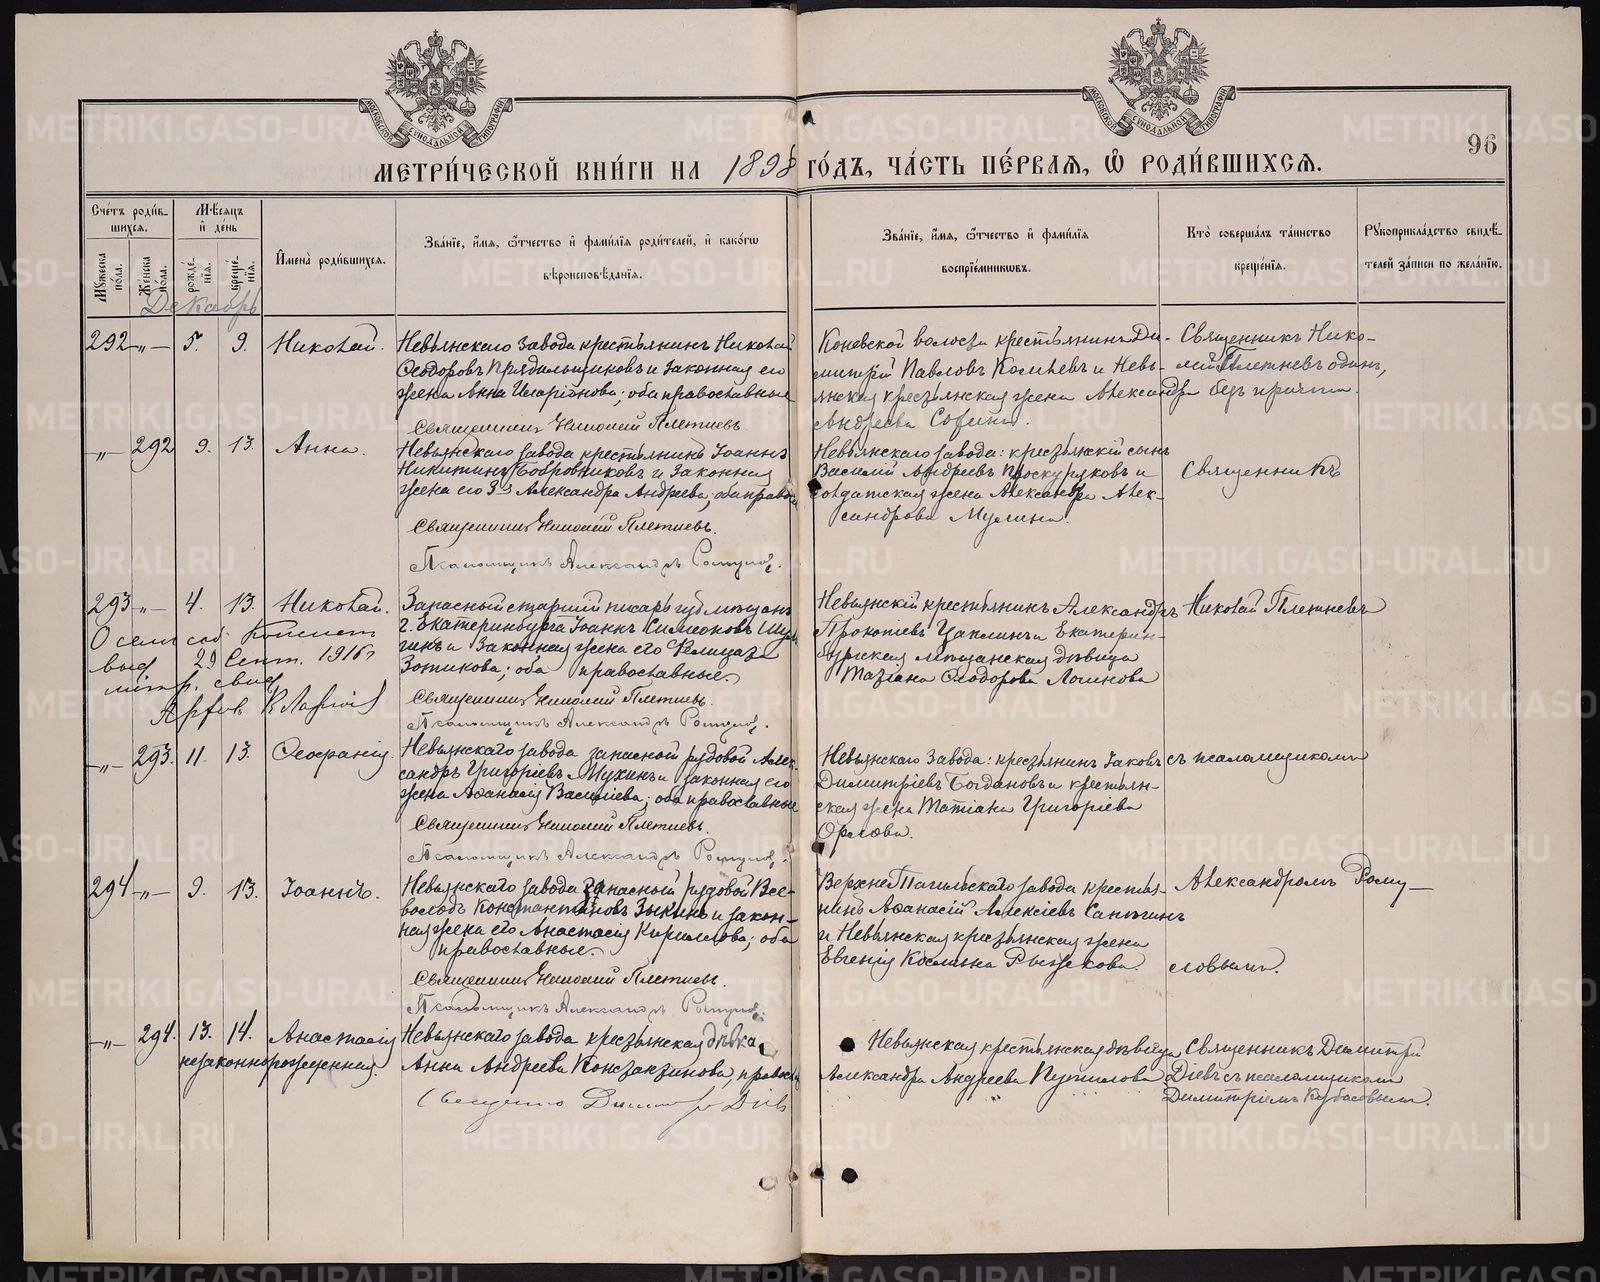 МЕТРИ́ЧЕСКОЙ КНИ́ГИ НА 1898 ГО́ДЪ, ЧА́СТЬ ПЕ́РВАЯ, Ѡ РОДИ́ВШИХСЯ.
96
Сче́тъ роди́в-
шихся.
Мѣсяцъ
и҆ де́нь
Мꙋжеска по́ла.
Же́нска по́ла.
рожде́-
нїя.
креще́-
нїя.
И҆мена̀ роди́вшихся.
Зва́нїе, и҆мя, ѻ҆́тчество и҆ фами́лїя роди́телей, и҆ како́гѡ
вѣроисповѣ́данїя.
Зва́нїе, и҆мя, ѻ҆́тчество и҆ фами́лїя
воспрїе́мниковъ.
Кто̀ соверша́лъ та́инство
креще́нїя.
Рꙋкоприкла́дство свидѣ́-
телей за́писи по жела́нїю.
Декабрь
292 -„- 5. 9. Николай.
Невьянскаго Завода крестьянинъ Николай
Ѳеодоровъ Прядильщиковъ и законная его
жена Анна Иларіонова; оба православные
Священникъ Николай Плетневъ.
Коневской волости крестьянинъ Ди-
митрій Павловъ Копѣевъ и Невь-
янская крестьянская жена Александра
Андреева
Священникъ Нико-
лай Плетневъ одинъ,
безъ причта.
-„- 292 9. 13. Анна.
Невьянскаго завода крестьянинъ Іоаннъ
Никитинъ Бобровниковъ и Законная
жена его Александра Андреева, оба правос
Священникъ Николай Плетневъ.
Псаломщикъ Александръ
Невьянскаго завода: крестьянскій сынъ
Василій Андреевъ Проскуряковъ и
солдатская жена Александра Алек-
сандрова
Священникъ
293 -„- 4. 13. Николай.
Запасный старшій писарь
г. Екатеринбурга Іоаннъ Симеоновъ
и Законная жена его Фелицата
Зотикова; оба православные.
Священникъ Николай Плетневъ.
Псаломщикъ Александръ
О сем
выд 29 Сент. 1916 г
Невьянскій крестьянинъ Александръ
Прокопіевъ Цаплинъ и Екатерин-
бургская мѣщанская дѣвица
Татіана Ѳеодорова Логинова
Николай Плетневъ
-„- 293. 11. 13. Ѳеофанія.
Невьянскаго завода запасной рядовой Алек-
сандръ Григоріевъ Мухинъ и законная его
жена Аѳанасія Василіева; оба православные
Священникъ Николай Плетневъ.
Псаломщикъ Александръ
Невьянскаго Завода: крестьянинъ Іаковъ
Димитріевъ Богдановъ и крестьян-
ская жена Татіана Григоріева
Орлова.
съ псаломщикомъ
294 -„- 9. 13. Іоаннъ.
Невьянскаго завода запасной рядовой Все-
володъ Константиновъ Зыкинъ и закон-
ная жена его Анастасія Кириллова; оба
православные.
Священникъ Николай Плетневъ.
Псаломщикъ Александръ
Верхне Тагильскаго завода крестья-
нинъ Аѳанасій Алексіевъ Сапегинъ
и Невьянская крестьянская жена
Евгенія Космина Рыжкова.
Александромъ Рому-
ловымъ.
-„- 294. 13. 14. Анастасія
незаконнорожденная.
Невьянскаго завода крестьянская дѣвка
Анна Андреева Константинова, правосл
Священникъ Димитрій Діевъ
Невьянская крестьянская дѣвица
Александра Андреева Путилова
Священникъ Димитрій
Діевъ съ псаломщикомъ
Димитріемъ Кубасовымъ.
METRIKI.GASO-URAL.RU